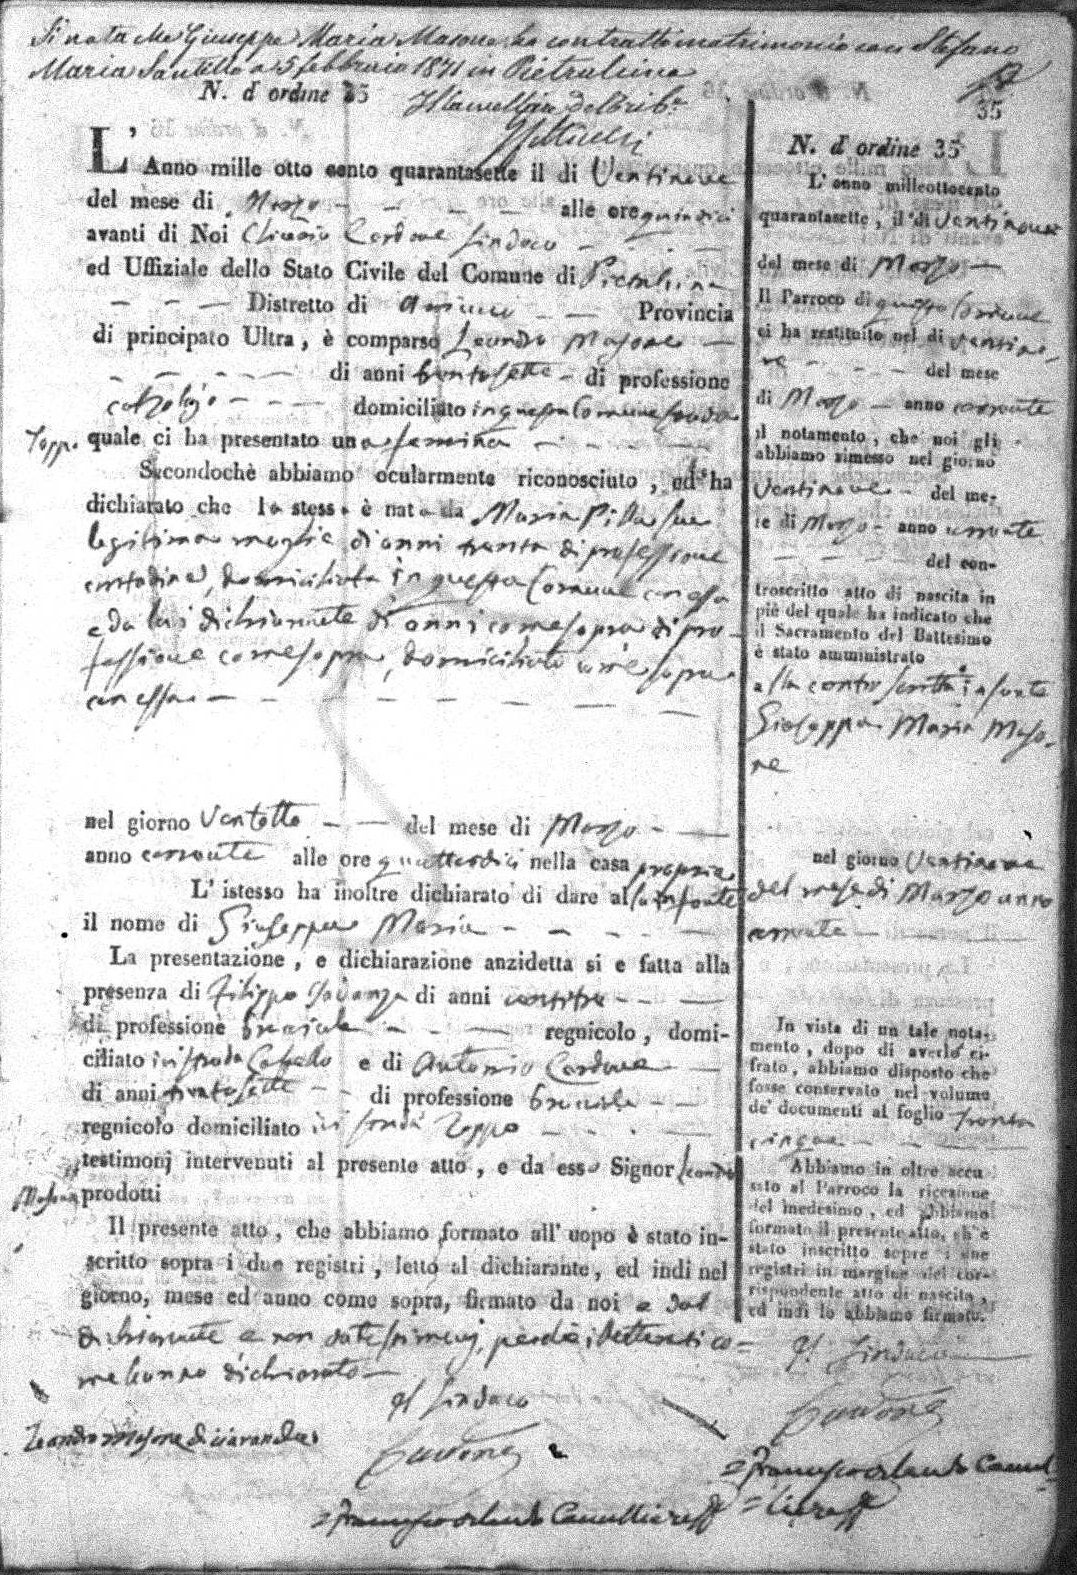 Si nota che Giuseppa Maria Masone ha contratto matrimonio con Stefano
Maria Santillo a 5 febbraio 1871 in Pietralcina
N. d' ordine 35
Il Cancelliere del Trib.
35
L' Anno mille otto cento quarantasette il di Ventinove
del mese di Marzo alle ore quindici
avanti di Noi Cardone Sindaco
ed Uffiziale dello Stato Civile del Comune di Pietralcina
Distretto di Provincia
di principato Ultra, è comparso Leandro Masone
di anni trentasette di professione
domiciliato in questo Comune strada
Toppo quale ci ha presentato una femina
Secondochè abbiamo ocularmente riconosciuto, ed ha
dichiarato che la stessa è nata da Maria Pilla sua
legitima moglie di anni trenta di professione
contadina, domiciliata in questo Comune con esso
e da lui dichiarante di anni come sopra di pro-
fessione come sopra, domiciliato come sopra
con essa
nel giorno Ventotto del mese di Marzo
anno corrente alle ore quattordici nella casa propria
L' istesso ha inoltre dichiarato di dare alla infante
il nome di Giuseppa Maria
La presentazione, e dichiarazione anzidetta si e fatta alla
presenza di Filippo di anni
di professione bracciale regnicolo, domi-
ciliato in strada e di Antonio Cardone
di anni trentasette di professione bracciale
regnicolo domiciliato in strada Toppo
testimonj intervenuti al presente atto, e da esso Signor Leandro
Masone prodotti
Il presente atto, che abbiamo formato all' uopo è stato in-
scritto sopra i due registri, letto al dichiarante, ed indi nel
giorno, mese ed anno come sopra, firmato da noi e dal
dichiarante e non da testimonj, perchè illetterati co-
me hanno dichiarato
Il Sindaco
Cardone
Leandro Masone dichiarante
N. d' ordine 35
L' anno milleottocento
quarantasette, il di Ventinove
del mese di Marzo
Il Parroco di questo Comune
ci ha restituito nel di ventino-
ve del mese
di Marzo anno corrente
il notamento, che noi gli
abbiamo rimesso nel giorno
Ventinove del me-
se di Marzo anno corrente
del con-
troscritto atto di nascita in
piè del quale ha indicato che
il Sacramento del Battesimo
è stato amministrato
alla controscritta infante
Giuseppa Maria Maso-
ne
nel giorno Ventinove
del mese di Marzo anno
corrente
In vista di un tale nota-
mento, dopo di averlo ci-
frato, abbiamo disposto che
fosse conservato nel volume
de' documenti al foglio trenta
cinque
Abbiamo in oltre accu
sato al Parroco la ricezione
del medesimo, ed abbiamo
formato il presente atto, ch'è
stato inscritto sopra i due
registri in margine del cor-
rispondente atto di nascita,
ed indi lo abbiamo firmato.
Il Sindaco
Cardone